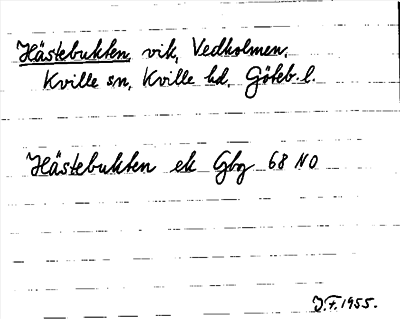 Hästebukten, vik, Vedholmen,
Kville sn, Kville hd, Göteb. l.
Hästebukten ek Gbg 68 NO
J.F. 1955.